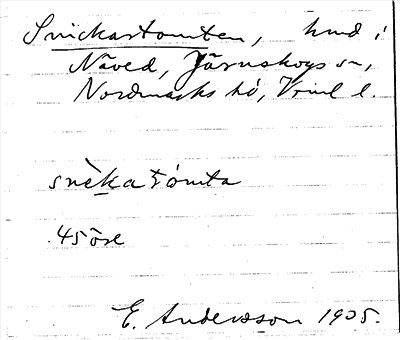 Snickartomten, hmd i
Näved, Järnskogs sn,
Nordmarks hd, Vrml l.
snɛ̀katómta
45 öre
E. Andersson 1905.